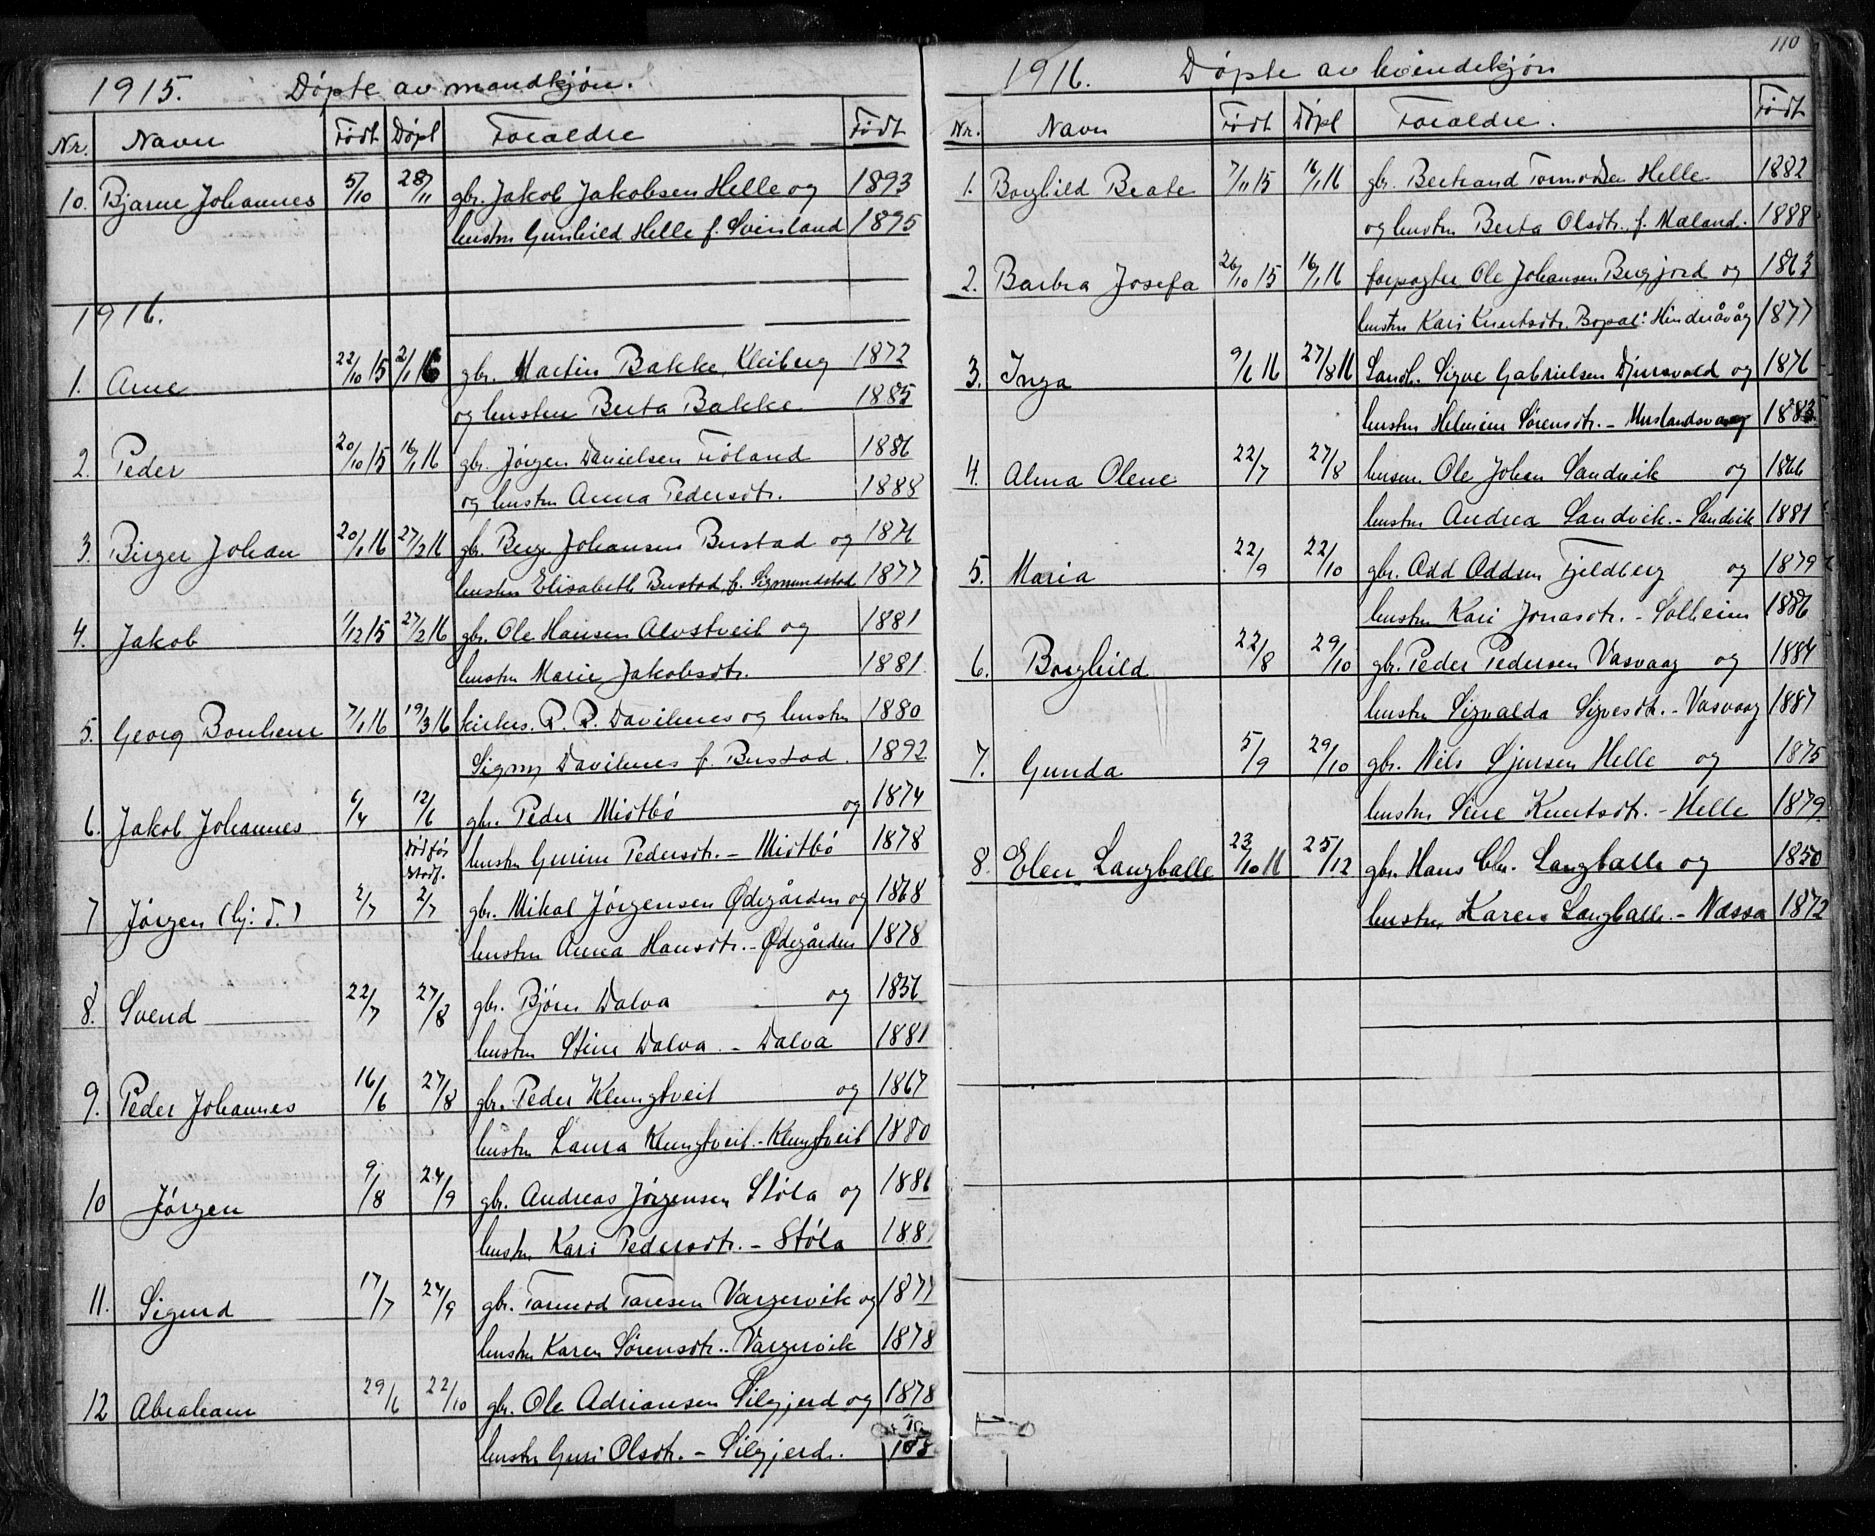 1915. Døpte av mandkjøn.
Nr. Navn Født Døpt Forældre Født
10. Bjarne Johannes 5/10 28/11 gbr. Jakob Jakobsen Helle og 1893
hustru Gunhild Helle f. Svinland 1895
1916.
1. Arne 22/10 15 2/1 16 gbr. Martin Bakke, Kleiberg 1872
og hustru Berta Bakke 1885
2. Peder 20/10 15 16/1 16 gbr. Jørgen Danielsen Fiøland 1886
og hustru Anna Pedersdtr. 1888
3. Birger Johan 20/1 16 27/2 16 gbr. Berge Johansen Bustad og 1871
hustru Elisabeth Bustad f. Sigmundstad 1877
4. Jakob 1/12 15 27/2 16 gbr. Ole Hansen Alvstveit og 1881
hustru Marie Jakobsdtr. 1881
5. Georg Bonhem 7/1 16 19/3 16 kirkes. R. R. Davilnes og hustru 1880
Signy Davilnes f. Bustad. 1892
6. Jakob Johannes 6/4 12/6 gbr. Peder Midtbø og 1874
hustru Gurine Pedersdtr. - Midtbø 1878
død før stadf.
7 Jørgen (hj: d.) 2/7 2/7 gbr. Mikal Jørgensen Ødegården og 1868
hustru Anna Hansdtr. - Ødegården 1878
8. Svend 22/7 27/8 gbr. Bjørn Dalva og 1856
hustru Stine Dalva. - Dalva 1881
9. Peder Johannes 16/6 27/8 gbr. Peder Klungtveit og 1867
hustru Laura Klungtveit. - Klungtveit 1880
10 Jørgen 9/8 24/9 gbr. Andreas Jørgensen Støla og 1886
hustru Kari Pedersdtr. - Støla 1881
11. Sigurd 17/7 24/9 gbr. Tormod Taresen Vargervik og 1877
hustru Karen Sørensdtr. - Vargervik 1878
12 Abraham 29/6 22/10 gbr. Ole Adriansen Silgjerd og 1878
hustru Guri Olsdtr. - Silgjerd.
110
1916. Døpte av kvindekjøn
Nr. Navn Født Døpt Forældre. Født
1. Borghild Beate 7/11 15 16/1 16 gbr. Bertrand Tormodsen Helle 1882
og hustru Berta Olsdtr. f. Mæland. 1888
2. Barbra Josefa 26/10 15 16/1 16 forpagter Ole Johansen Bergjord og 1863
hustru Kari Knutsdtr. Bopæl: Hinderåvåg 1877
3. Inga 9/6 16 27/8 16 Landh. Sigve Gabrielsen Djursvold og 1876
hustru Helmine Sørensdtr. - Muslandsvaag 1883
4. Alma Olene 22/7 27/8 husm. Ole Johan Sandvik og 1866
hustru Andrea Sandvik. - Sandvik 1881
5. Maria 22/9 22/10 gbr. Odd Oddsen Fjeldberg og 1879
hustru Kari Jonasdtr. - Solheim 1886
6. Borghild 22/8 29/10 gbr. Peder Pedersen Vasvaag og 1884
hustru Sigvalda Sigvesdtr. - Vasvaag 1887
7. Gunda 5/9 29/10 gbr. Nils Sjursen Helle og 1875
hustru Sine Knutsdtr. - Helle 1879
8. Elen Langballe 23/10 16 25/12 gbr. Hans Chr. Langballe og 1850
hustru Karen Langballe. - Næssa 1872